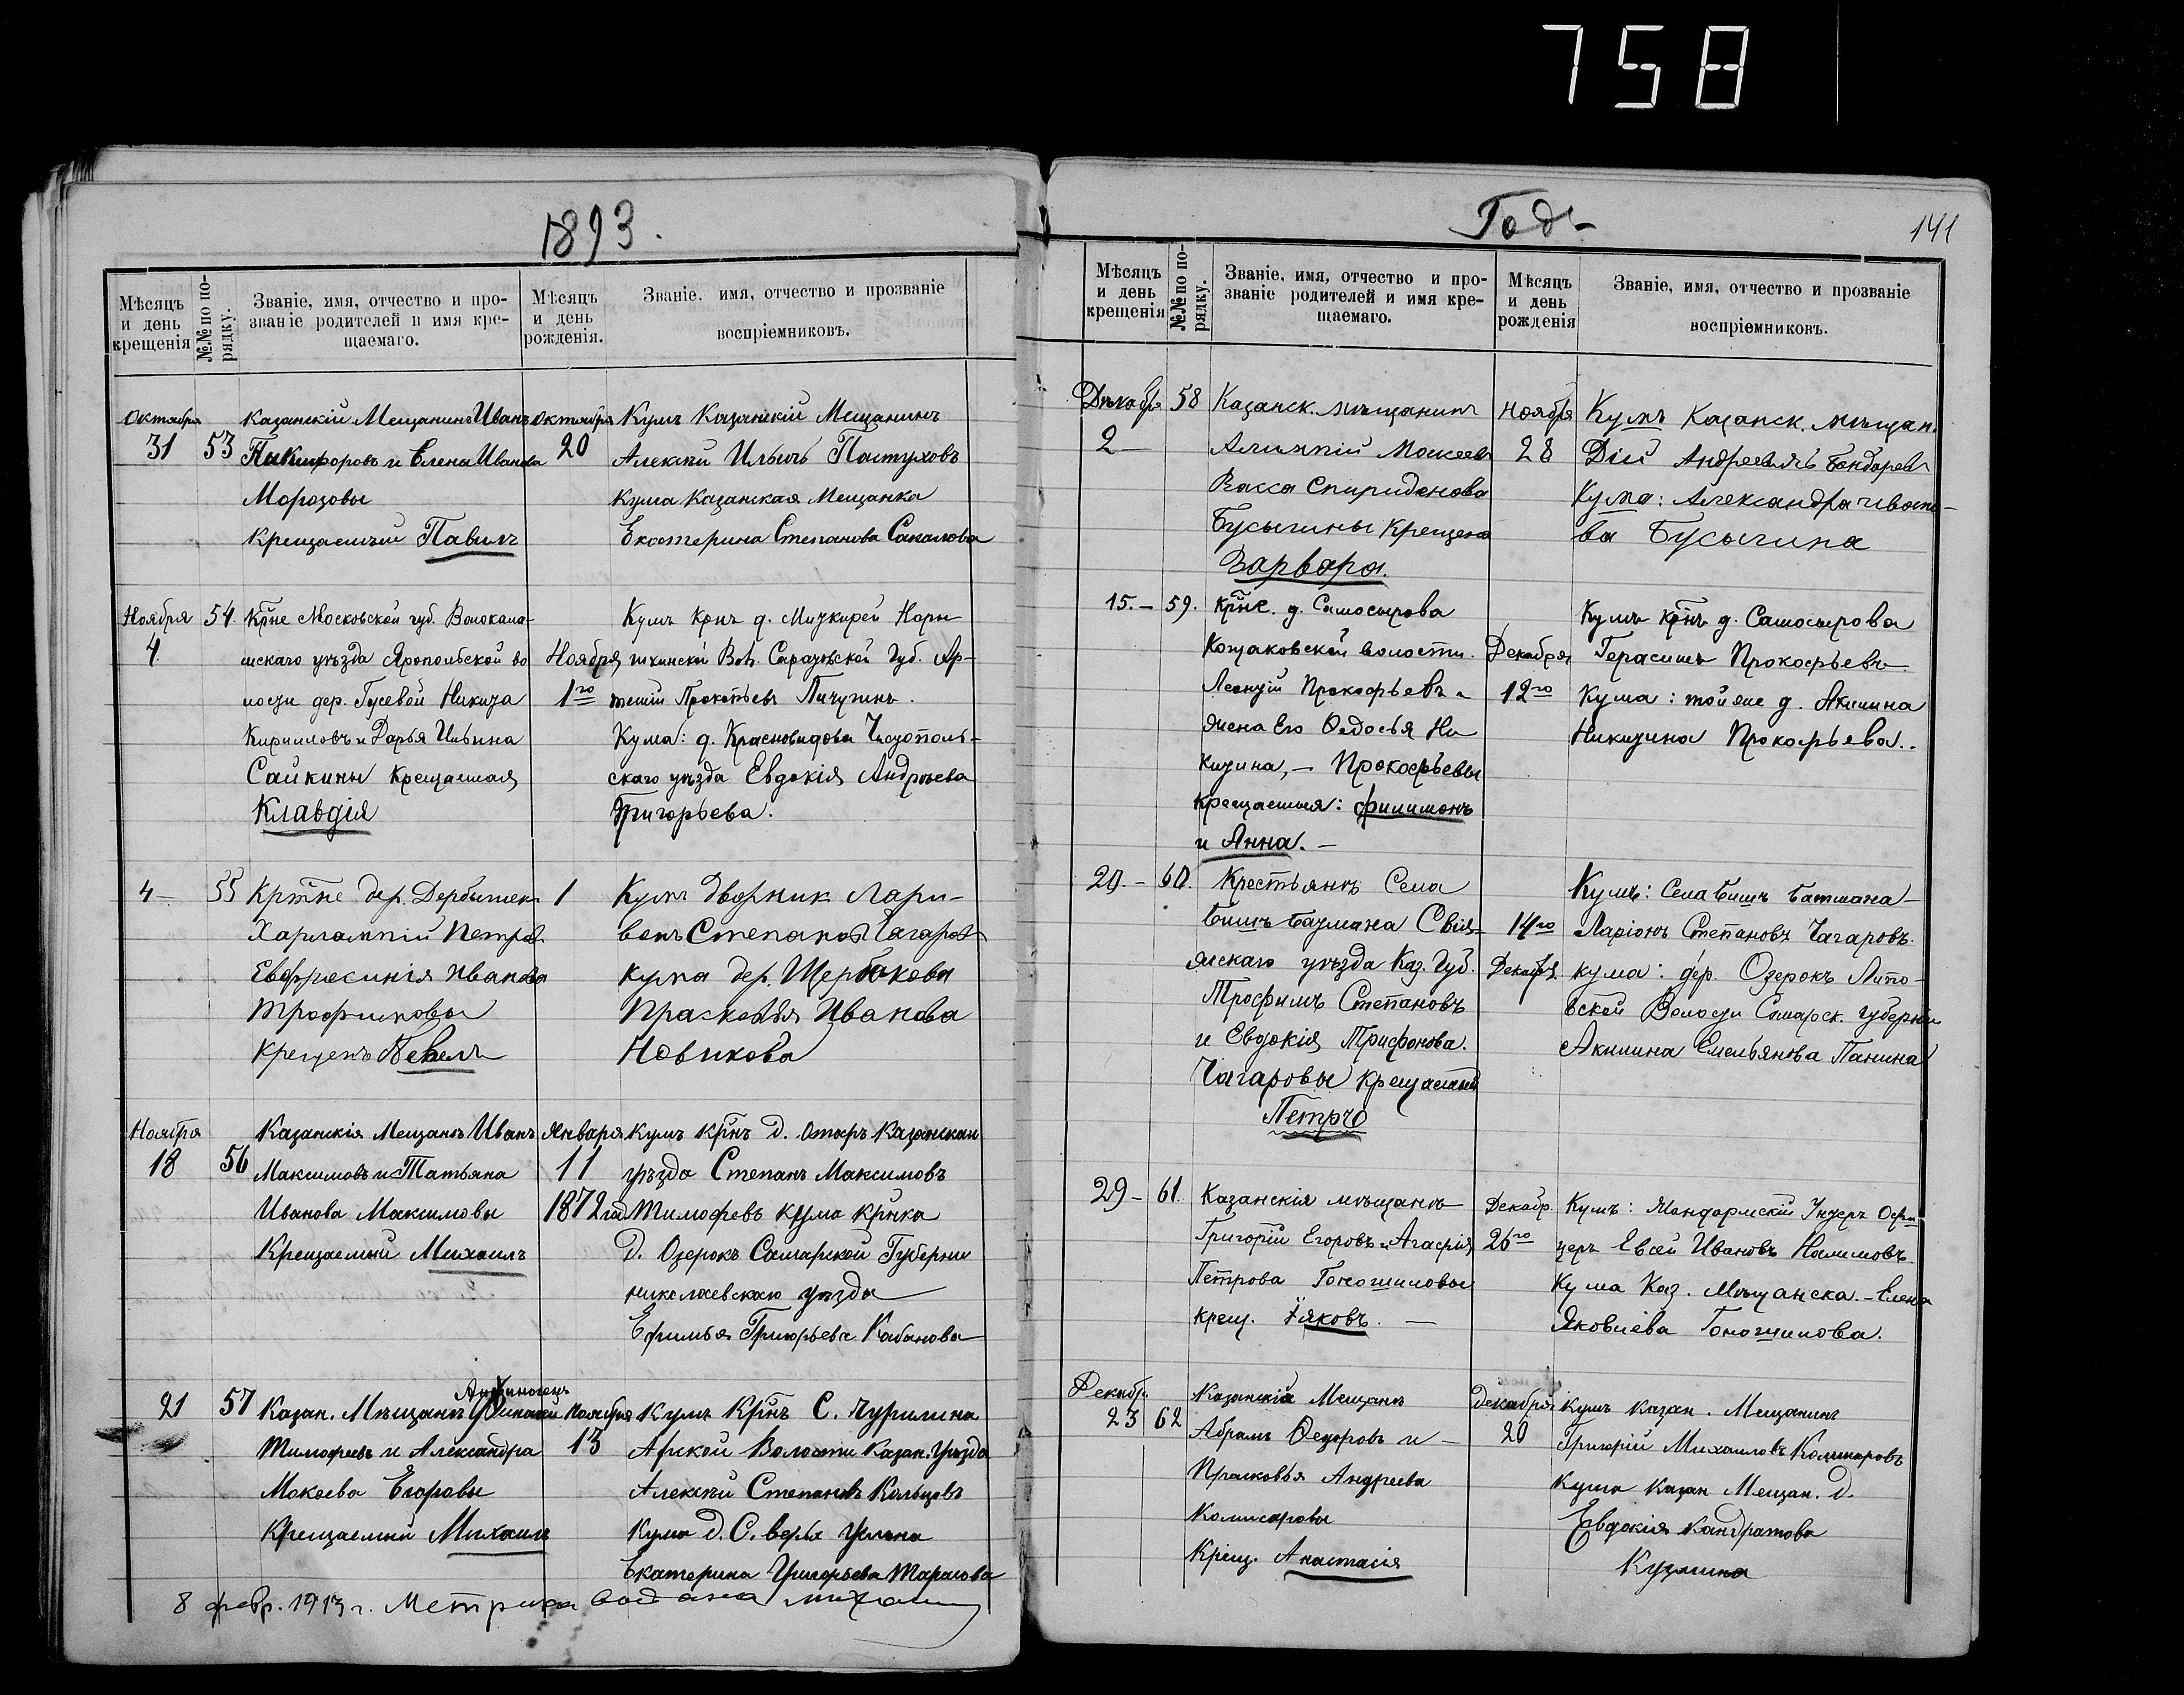 758
1893.
Мѣсяцъ и день крещенія
№№ по порядку.
Званіе, имя, отчество и про-
званіе родителей и имя кре-
щаемаго.
Мѣсяцъ и день рожденія.
Званіе, имя, отчество и прозваніе
воспріемниковъ.
Октября 31
53
Казанскій Мещанинъ Иванъ
Никифоровъ и Елена Иванова
Морозовы
Крещаемый Павилъ
Октября 20
Кумъ Казанскій Мещанинъ
Алексѣй Ильичъ Пастуховъ
Кума Казанская Мещанка
Екатерина Степанова Сакалова
Ноября 4
54.
Крⷭ҇не Московской губ. Волокала-
мскаго уѣзда Яропольской во
лости дер. Гусевой Никита
Кириловъ и Дарья Ильина
Сайкины Крещаемая
Клавдія
Ноября 1го
Кумъ Крнъ д.
Саратовской Губ. Ар-
темій Прокопьевъ Пичугинъ.
Кума: д. Красновидова Чистополь-
скаго уѣзда Евдокія Андрѣева
Григорьева.
4 —
55
Кртне дер. Дербышек
Харлампій Петров
Евфросинія Иванова
Трофимовы
Крещенъ Павелъ
1
Кумъ дворник Лари-
вонъ Степановъ Чагаров
кума дер. Щербакова
Прасковья Иванова
Новикова
Ноября 18
56
Казанскія Мещане Иванъ
Максимовъ и Татьяна
Иванова Максимовы
Крещаемый Михаилъ
Января 11
1872 год
Кумъ Крнъ д. Отаръ Казанскаго
уѣзда Степанъ Максимовъ
Тимофевъ кума Крнка
Д. Озерокъ Самарской Губернии
николаевскаго уѣзда
Ефимья Григорьева Кабанова
21
57
Анфиногенъ
Казан. Мѣщане
Тимофеевъ и Александра
Мокѣева Егоровы
Крещаемый Михаилъ
Ноября 13
Кумъ Крнъ С. Чурилина
Арской Волости Казан. Уѣзда
Алексѣй Степановъ Кольцовъ
Кума д. С. верхн Услона
Екатерина Григорьева Тарасова
8 февр. 1913 г. Метрика выдана
Годъ
141
Мѣсяцъ и день крещенія
№№ по порядку.
Званіе, имя, отчество и про-
званіе родителей и имя кре-
щаемаго.
Мѣсяцъ и день рожденія
Званіе, имя, отчество и прозваніе
воспріемниковъ.
Декабря 2 —
58
Казанск. мѣщанинъ
Алимпій Мокеевъ
Васса Спиридонова
Бусыгины Крещена
Варвара.
Ноября 28
Кумъ Казанск. мѣщан.
Дій Андреевичъ Бондаревъ
Кума: Александра Ивано-
ва Бусыгина
15. —
59.
Крне. д. Самосырова
Кощаковской волости.
Леонтій Прокофьевъ и
жена Его Ѳедосья Ни
китина, — Прокофьевы
крещаемыя: Филимонъ
и Анна. —
Декабря 12го
Кумъ крнъ д. Самосырова
Герасимъ Прокофьевъ
Кума: той же д. Акилина
Никитина Прокофьева..
20. —
60.
Крестьянъ Села
Бишъ Батмана Свія-
жскаго уѣзда Каз. Губ.
Трофимъ Степановъ
и Евдокія Трифонова.
Чагаровы крещаемый
Петръ
14го Декабря.
Кумъ: Села Бишъ Батмана —
Ларіонъ Степановъ Чагаровъ.
кума: дер. Озерокъ Липо-
вской Волости Самарск. губерніи
Акилина Емельянова Панина
29 —
61.
Казанскія мѣщане
Григорій Егоровъ и Агафія
Петрова Гоношиловы
крещ. Іяковъ. —
Декабр. 26го
Кумъ: Жандармскій Унтеръ Офи-
церъ Евсѣй Ивановъ Налимовъ.
Кума Каз. Мѣщанска. — Елена
Яковлева Гоношилова.
Декабр. 23
62
Казанскія Мещане
Абрамъ Ѳедоровъ и —
Прасковья Андреева
Комисаровы
Крещ. Анастасія
Декабря 20
Кумъ Казан. Мещанинъ
Григорій Михаиловъ Комисаровъ
Кума Казан Мещан. д.
Евдокія Кандратова
Кузмина